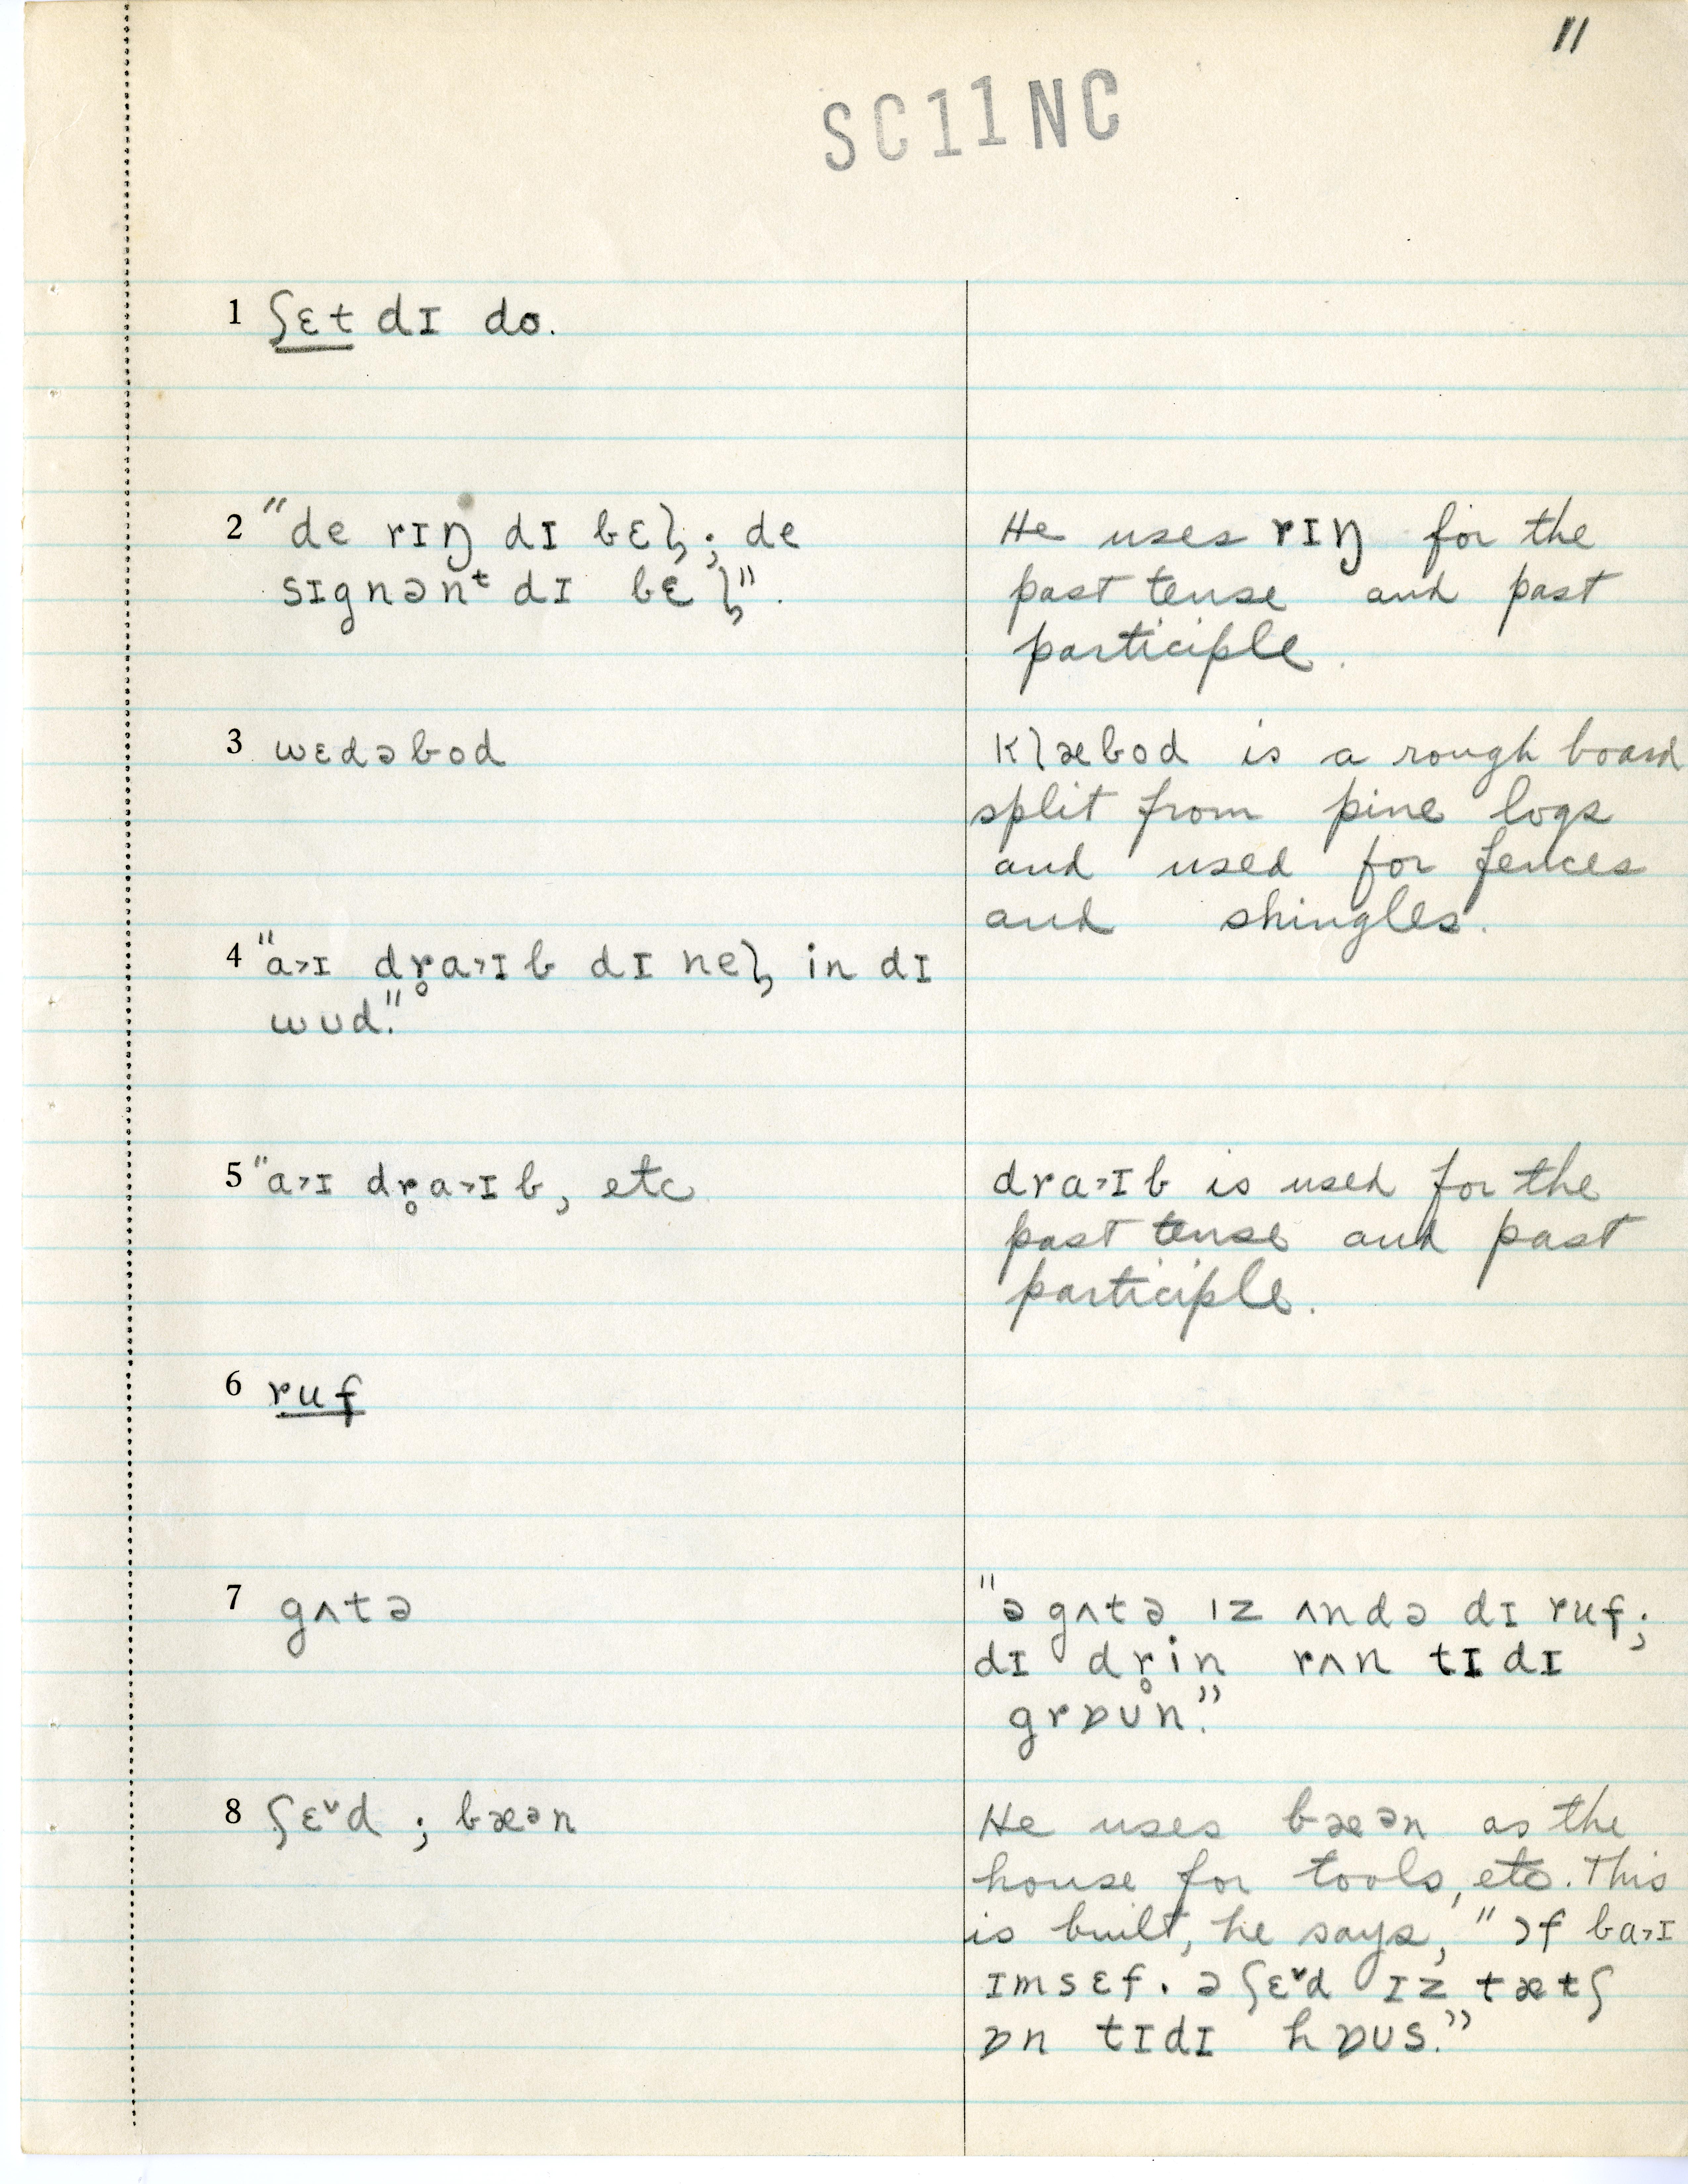 11
SC11NC
1 ʃɛt dɪ do.
2 "de rɪŋ dɪ bɛɫ; de
sɪgnənᵗ dɪ bɛɫ".
He uses rɪŋ for the
past tense and past
participle.
3 wɛdəbod
klæbod is a rough board
split from pine logs
and used for fences
and shingles.
4 "a˃ɪ dr̥a˃ɪb dɪ neɫ in dɪ
wud."
5 "a˃ɪ dr̥a˃ɪb, etc
dra˃ɪb is used for the
past tense and past
participle.
6 ruf
7 gʌtə
"ə gʌtə ɪz ʌndə dɪ ruf;
dɪ dr̥in rʌn tɪ dɪ
grɒun."
8 ʃɛ˅d ; bæən
He uses bæən as the
house for tools, etc. This
is built, he says, "ɔf ba˃ɪ
ɪmsɛf. ə ʃɛ˅d ɪz tætʃ
ɒn tɪdɪ hɒus."